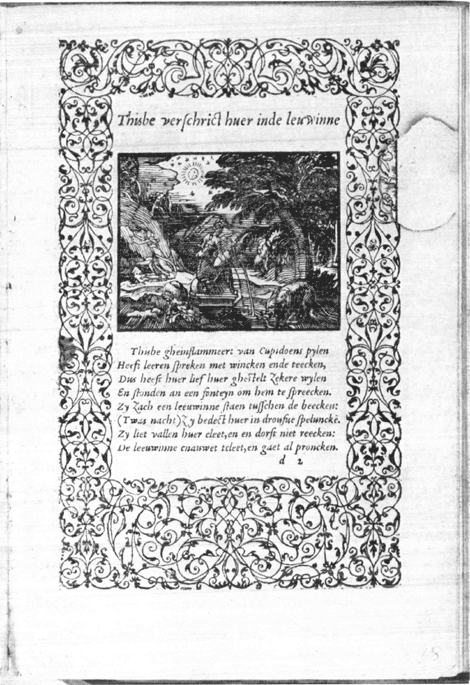 Thisbe verschrict huer inde leuwinne
Thisbe gheinflammeert van Cupidoens pylen
Heeft leeren spreken met wincken ende teecken,
Dus heeft huer lief huer ghestelt zekere wylen
En stonden an een fonteyn om hem te spreecken.
Zy zach een leeuwinne staen tusschen de beecken:
(Twas nacht) zy bedect huer in droufue speluncke.
Zy liet vallen huer cleet, en en dorst niet reecken:
De leeuwinne cnauwet tcleet, en gaet al proncken.
d 2